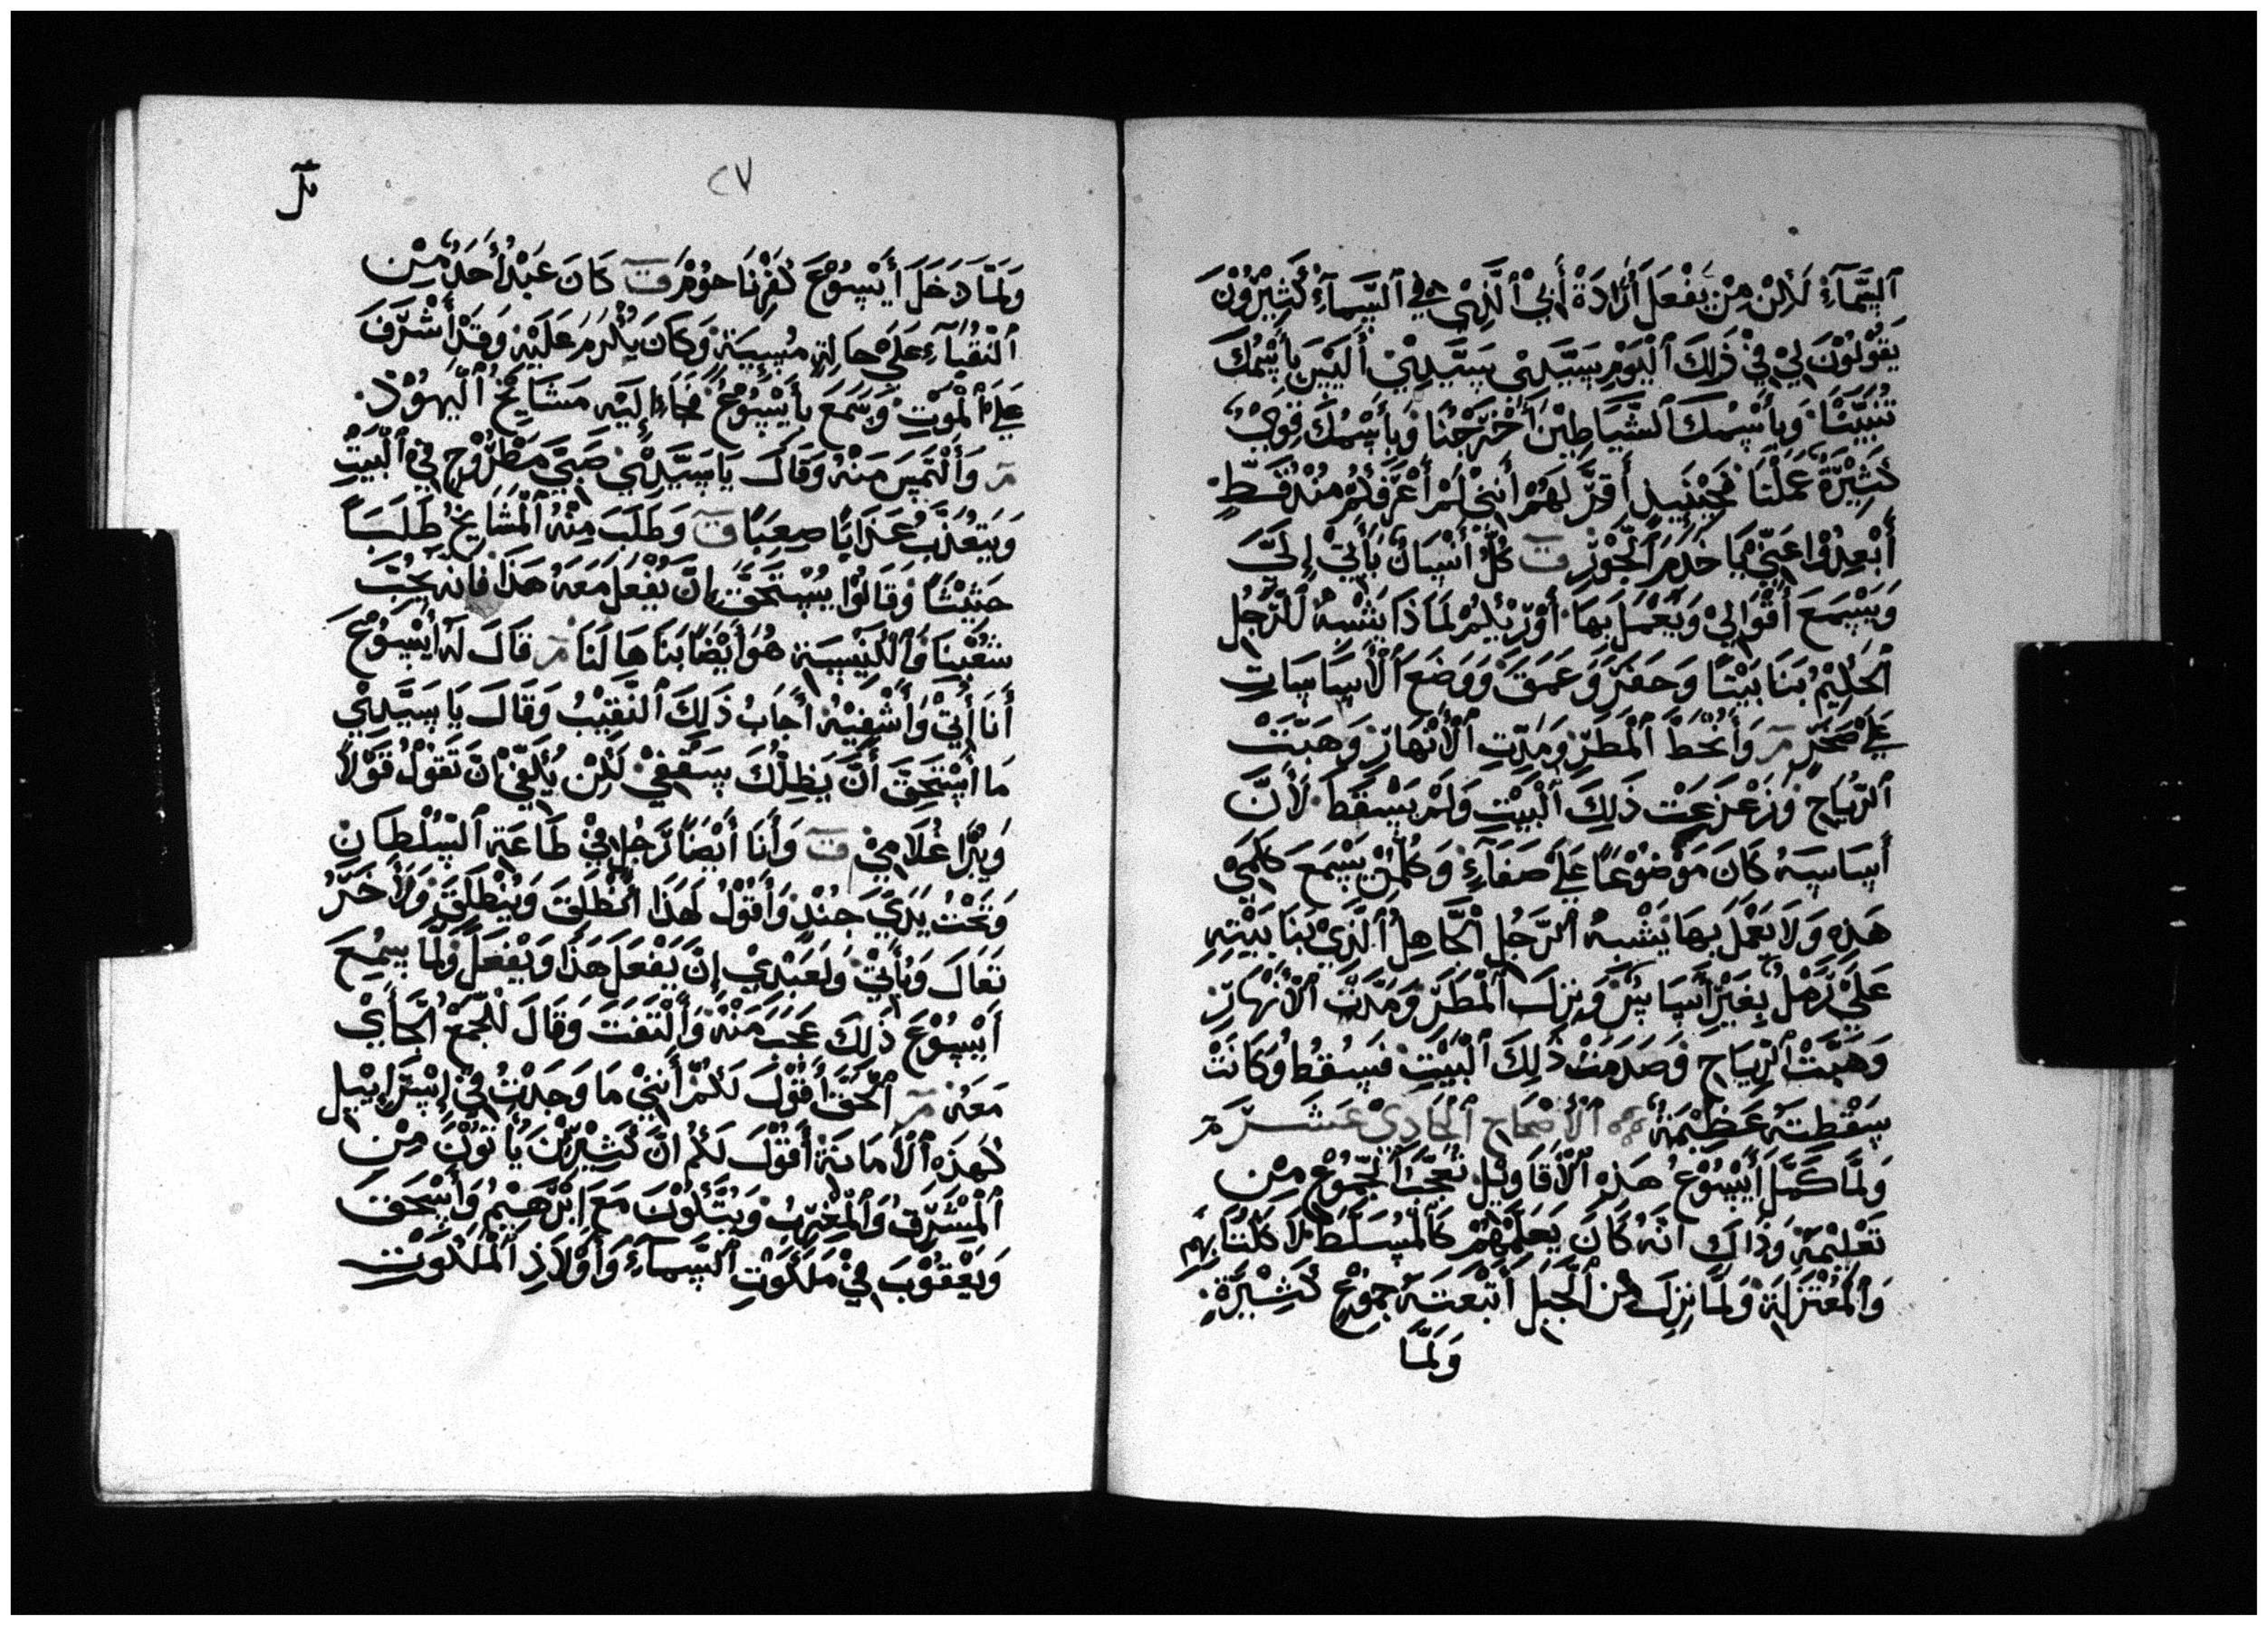 ٱلسَّمَآءِ لَاكِنْ مِنْ يَفْعَلَ أَرَادَةْ أَبِيْ ٱلَّذِيْ فِي ٱلسَّمَآءِ كَثِيْرُوْنَ
يَقُوْلُوْنَ لِيْ فِيْ ذَلِكَ ٱلْيَوْمِ سَيَّدِيْ سَيَّدِيْ أَلَيْسَ بِأَسْمُكَ
تَنَبِّيْنَا وَبِأَسْمِكَ ٱلشَّيَاطِيْنَ أَخْرَجْنَا وَبِأَسْمُكَ قِوَىْ
كَثِيْرَةْ عَمَلْنَا فَحِيْنَيِدِ أَقِرَّ لَهُمْ أَنَنِيْ لَمْ أَعْرَفْكُمْ مُنْذُ قَطِ
أَبْعِدُوْا عَنِّيْ يَا خَدَمَ ٱلْجَوْرِ ت كُلُّ أَنْسَانٌ يَأْتِيْ إِلَيَّ
وَيَسْمَعَ أَقْوَالِيْ وَيَعْمَلَ بِهَا أَوْرِّيْكُمْ لَمَاذَا يَشْبِهُ لَلرَّجُلِ
ٱلْحَلِيْمُ بَنَا بَيْتًا وَحَفَرَ وَعَمَقَ وَوَضَعَ ٱلْأَسَاسَاتِ
عَلَى صَخْرِ مر وَأَنْحَطَ ٱلْمَطَرْ وَمَدَّتِ ٱلْأَنْهَارْ وَهَبَّتْ
ٱلرِّيَاحْ وَزَعْزَعَتْ ذَلِكَ ٱلْبَيْتِ وَلَمْ يَسْقُطَ لِأَنَّ
أَسَاسَهُ كَانَ مَوْضُوْعًا عَلَى صَفَآءِ وَكُلْمَنْ يَسْمَعَ كَلِمَتِيْ
هَذِهِ وَلَا يَعْمَلَ بِهَا يَشْبِهُ ٱلرَّجُلِ ٱلْجَاهِلُ ٱلَّذِيْ بَنَا بَيْتِهِ
عَلَيْ رَمْلٍ بِغَيْرِ أَسَاسٍ وَنِزِلَ ٱلْمَطَرْ وَمَدَّتْ ٱلْأَنْهَارْ
وَهَبَّتْ ٱلرِّيَاحِ وَصَدَمَتْ ذَلِكَ ٱلْبَيْتِ فَسِقُطُ وَكَانَتْ
سَقْطِتَهُ عَظِيْمَةْ ٱلْأَصْحَاحِ ٱلْحَادِيْ عَشَرَ مر
وَلَمَّا كَمَّلَ أَيْسُوْعُ هَذِهِ ٱلْأَقَاوِيْلْ تَعْجَّبَ ٱلْجُمُوْعْ مِنْ
تَعْلِيْمَهْ وَذَاكَ انَّهُ كَانَ يَعَلِّمْهُمْ كَٱلْمُسَلَطَ لَا كَكُتَّابِهُمْ
وَٱلْمُعْتَزِلَةْ وَلَمَّا نِزِلَ مِنَ ٱلْجَبَلِ أَتْبَعَتَهُ جُمُوْعُ كَثِيْرَةْ
وَلَمَّا
٢٧
وَلَمَّا دَخَلَ أَيْسُوْعَ كَفَرْنَاحُوْمَ ت كَانَ عَبْدُ أَحَدٌ مِنْ
ٱلنُقَبَآءِ عَلَىْ حَالَةٍ مُسِيَةْ وَكَانَ يُكْرَمُ عَلَيْهِ وَقَدْ أَشْرَفَ
عَلَى ٱلْمَوْتِ وَسَمَعَ بِأَيْسُوْعْ فَجَاءَ إِلَيْهِ مَشَايِخُ ٱلْيَهُوْدْ
مر وَأَلْتَمَسَ مَنْهُ وَقَالَ يَا سَيَّدِيْ صَبِيَّ مَطْرُوْحٍ فِي ٱلْبَيْتِ
وَيَتعُذَّبُ عَذَابًا صِعِبًا ت وَطَلَبَ مِنْهُ ٱلْمَشَايِخُ طَلَبًا
حَثِيْثًا وَقَالُوْا يَسْتَحَقْ إِنْ يُفْعَلُ مَعَهُ هَذَا فَانه يَحُبُّ
شَعْبَنَا وَٱلْكَنِيْسَةِ هُوَ أَيْضًا بَنَاهَا لَنَا مر قَالَ لَهُ أَيْسُوْعَ
أَنَا أَتِيْ وَأَشْفِيْهُ أَجَابُ ذَلِكَ ٱلنَّقِيْبُ وَقَالَ يَا سَيَّدِيْ
مَا أَسْتَحِقَ أَنْ يَظِلَّكَ سَقْفِيْ لَكِنْ يُكْفِيْ أَنْ تَقُوْلُ قَوْلًا
وَيَبْرَا غُلَامِيْ ت وَأَنَا أَيْضًا رَجُلٍ فِيْ طَاعَةِ ٱلسُّلْطَانِ
وَتَحْتُ يَدِيَّ جُنْدٍ وَأَقُوْلُ لَهَذَا ٱنْطَلَقَ وَيَنْطَلَقَ وَلِأَخَرُ
تَعَالَ وَيَأْتِيْ وَلَعَبْدِيْ إِنْ يَفْعَلَ هَذَا وَيَفْعَلُ وَلَمَّا سِمِعَ
أَيْسُوْعَ ذَلِكَ عَجَبَ مَنْهْ وَأَلْتَفَتَ وَقَالَ لِلْجَمْعْ ٱلْجَائِي
مَعَهُ مر ٱلْحَقَّ أَقُوْلَ لَكُمْ أَنَنِيْ مَا وَجَدْتُ فِيْ إِسْرَاِيْيِل
كَهَذِهِ ٱلْأَمَانَةْ أَقُوْلَ لَكُمْ انَّ كَثِيْرِيْنَ يَأْتُوْنَ مِنْ
ٱلْمِشَرِقْ وَٱلْمَغْرِبْ وَيَتَّكُوْنَ مَعَ ابْرَهَيْمُ وَأَسْحَقَ
وَيَعْقُوْبَ فِيْ مَلَكُوْتِ ٱلسَّمَآءِ وَأَوْلَادِ ٱلْمَلَكُوْتِ